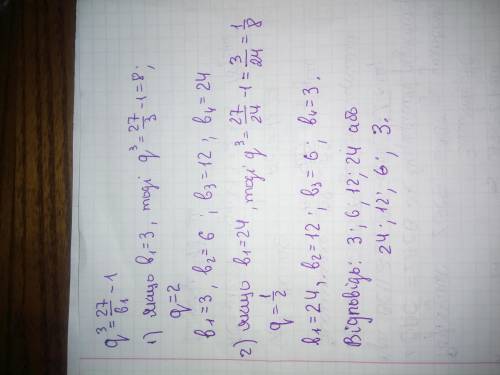 q³ = 27/b₁ − 1
1) якщо b₁=3, тоді q³ = 27/3 − 1 = 8;
q=2
b₁=3, b₂=6; b₃=12; b₄=24
2) якщо b₁=24, тоді q³ = 27/24 − 1 = 3/24 = 1/8
q = 1/2
b₁=24, b₂=12; b₃=6; b₄=3.
Відповідь: 3; 6; 12; 24 або
24; 12; 6; 3.